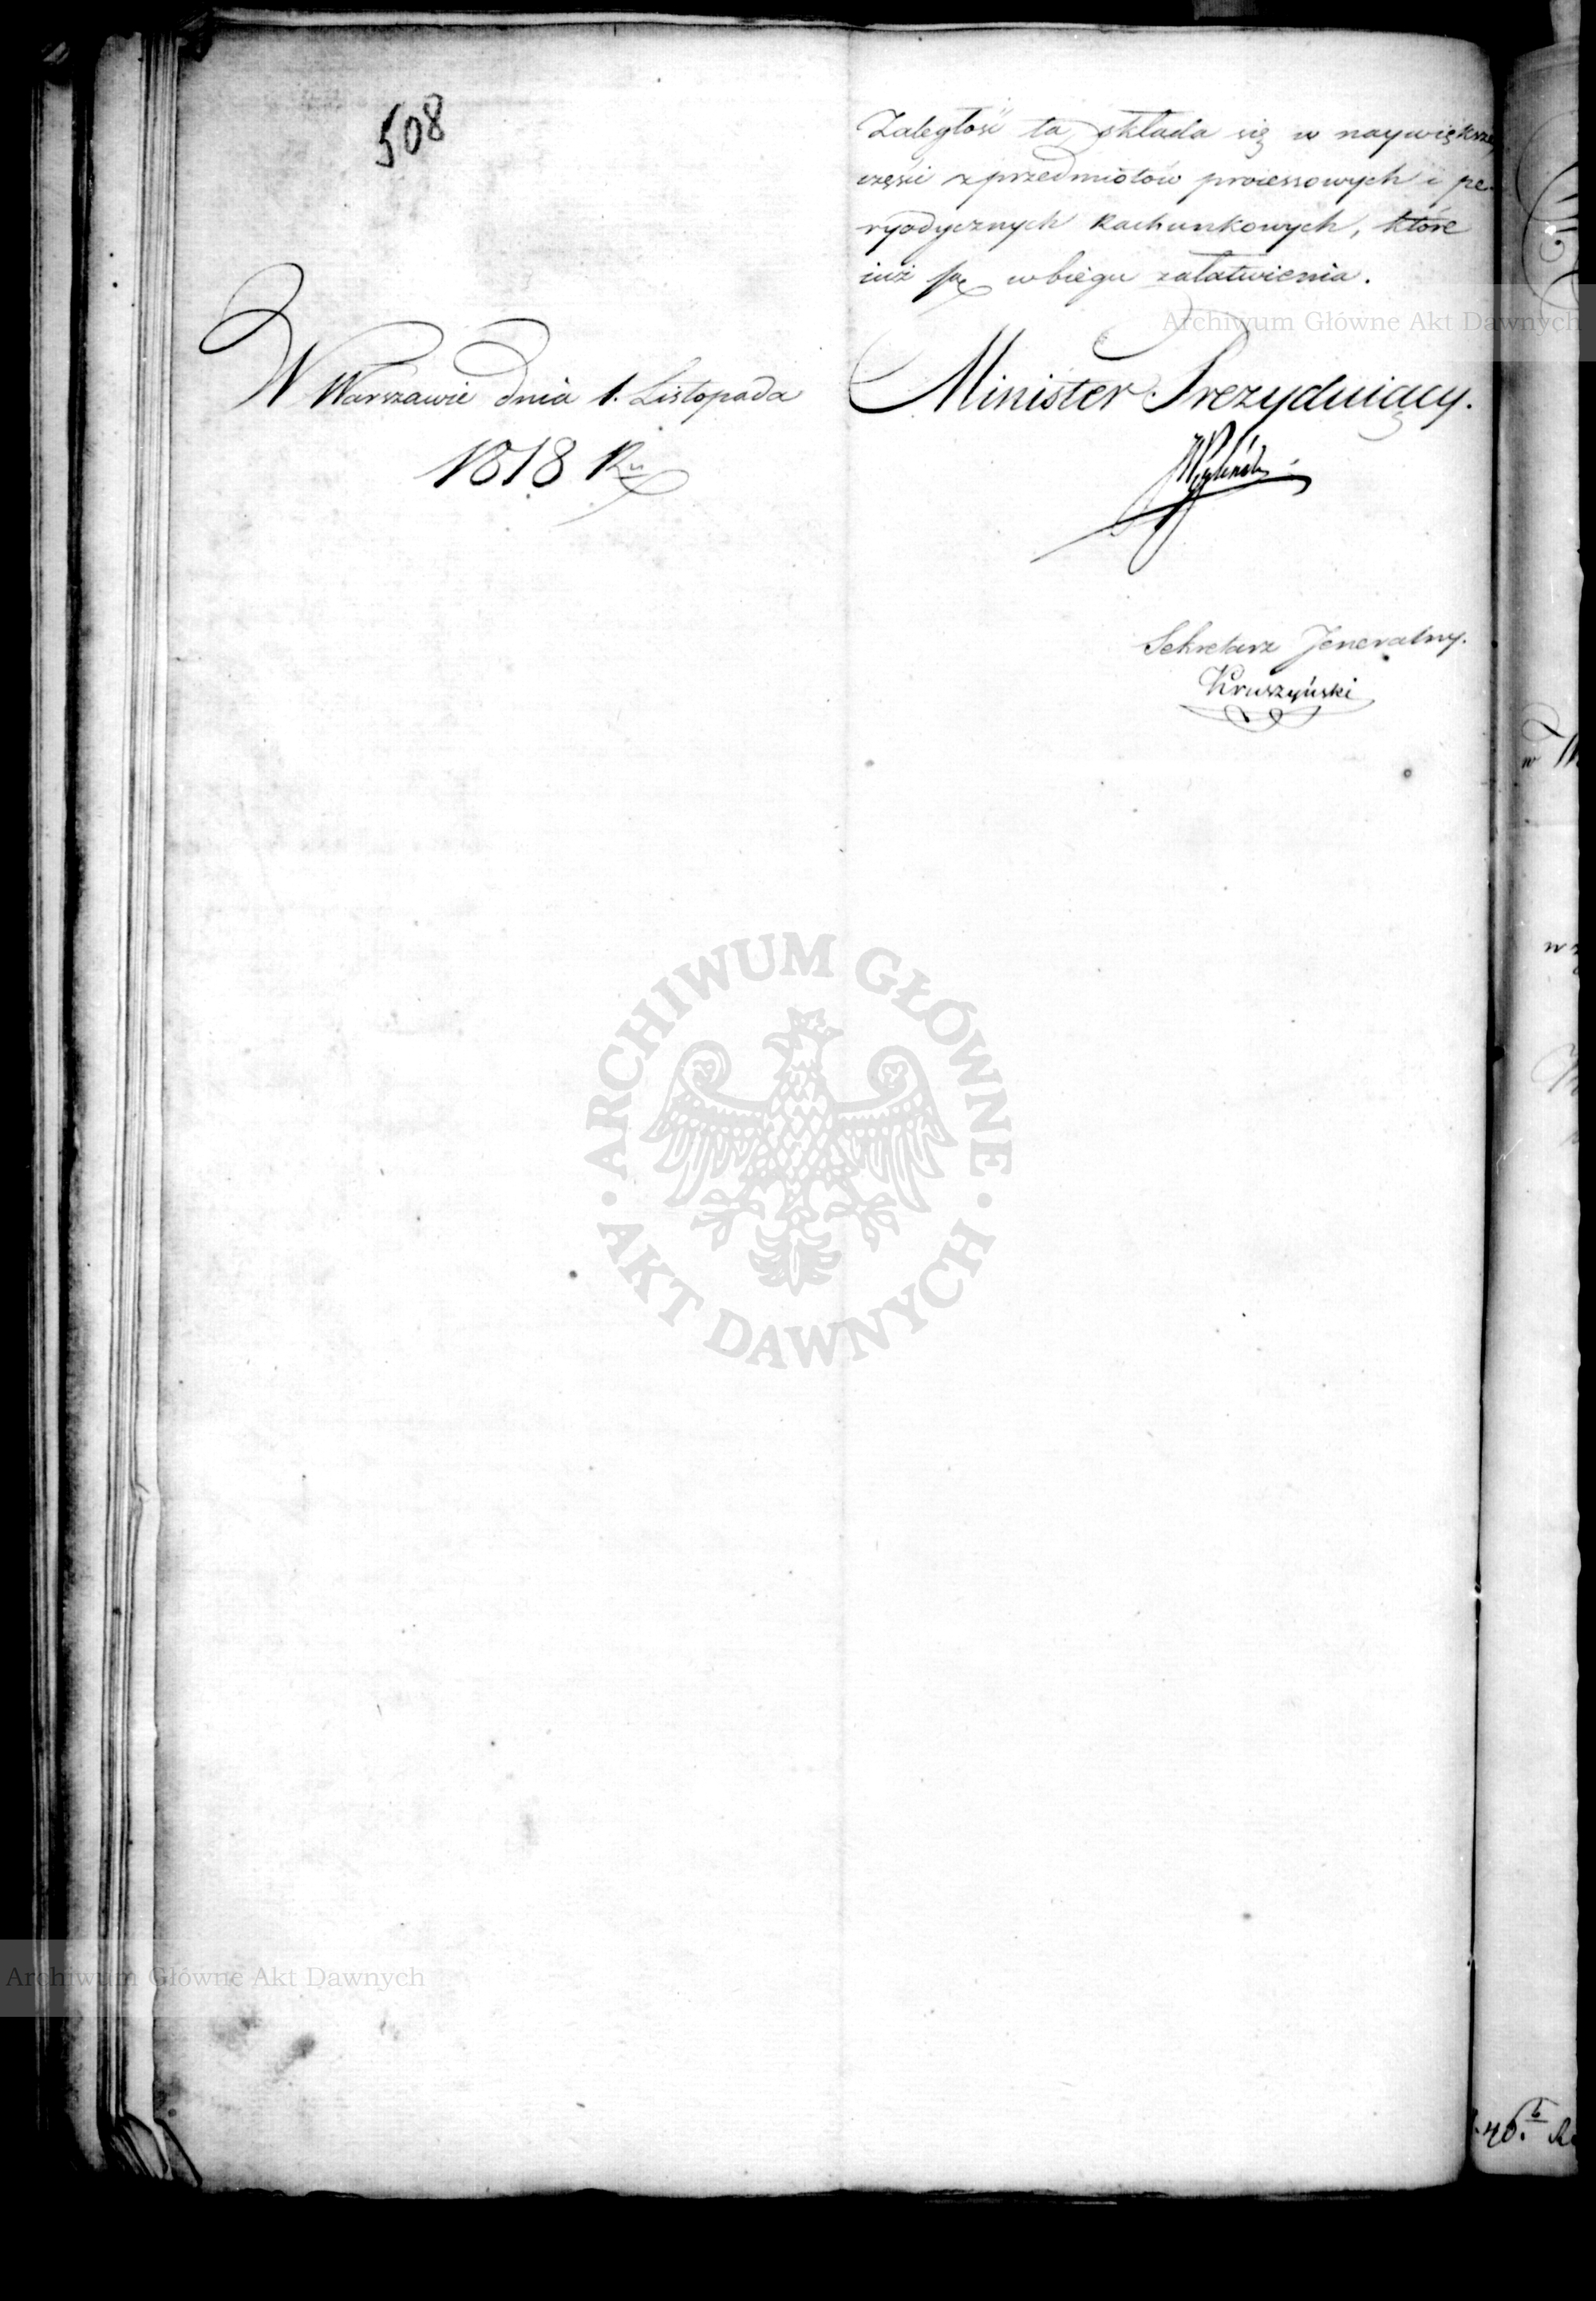 508
Zaległość ta składa się w naywiększey
części z przedmiotów processowych i pe-
ryodycznych Rachunkowych, które
iuż są w biegu załatwienia.
Archiwum Główne Akt Dawnych
W Warszawie dnia 1. Listopada
1818 Ru
Minister Prezyduiący.
Sekretarz Jeneralny.
Kruszyński
ARCHIWUM GŁÓWNE
AKT DAWNYCH
Archiwum Główne Akt Dawnych